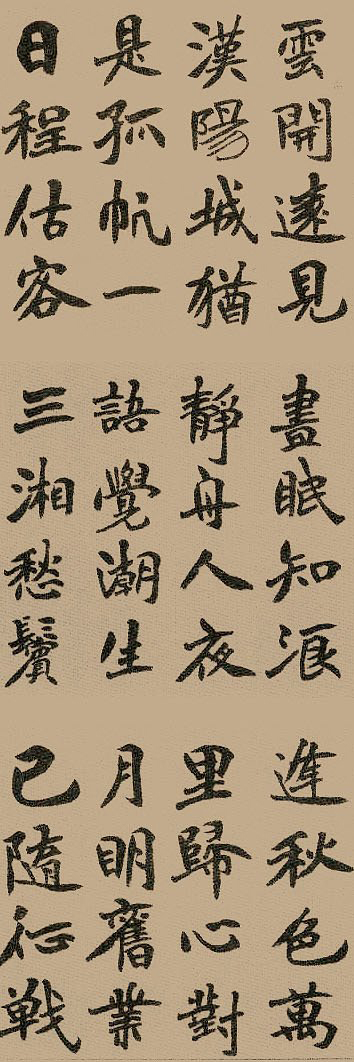 雲開遠見
漢陽城猶
是孤帆一
日程估客
晝眠知浪
靜舟人夜
語覺潮生
三湘愁鬢
逢秋色萬
里歸心對
月明舊業
已隨征戦